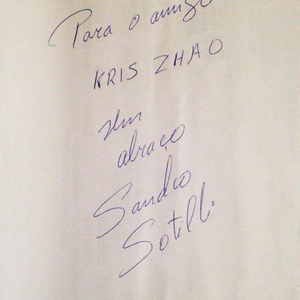 Para o amigo
KRIS ZHAO
Um
abraço
Sandro
Sotilli